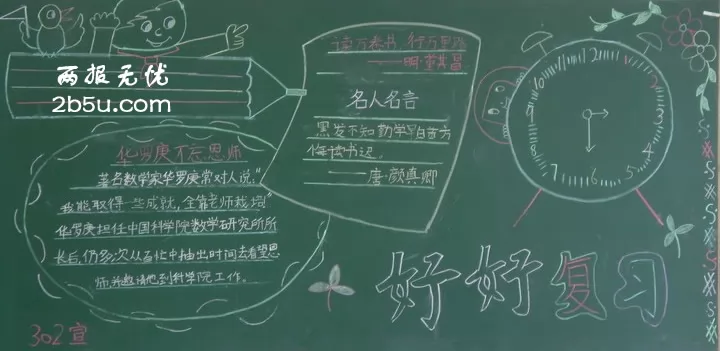 两报无忧
2b5u.com
读万卷书 行万里路
——明·董其昌
名人名言
黑发不知勤学早白首方
悔读书迟。
——唐·颜真卿
华罗庚不忘恩师
著名数学家华罗庚常对人说:"
我能取得一些成就,全靠老师栽培"
华罗庚担任中国科学院数学研究所所
长后,仍多次从百忙中抽出时间去看望恩
师并邀请他到科学院工作。
12
1
2
3
4
5
6
7
8
9
10
11
好好复习
302宣